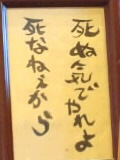 死ぬ気でやれよ
死なねぇから